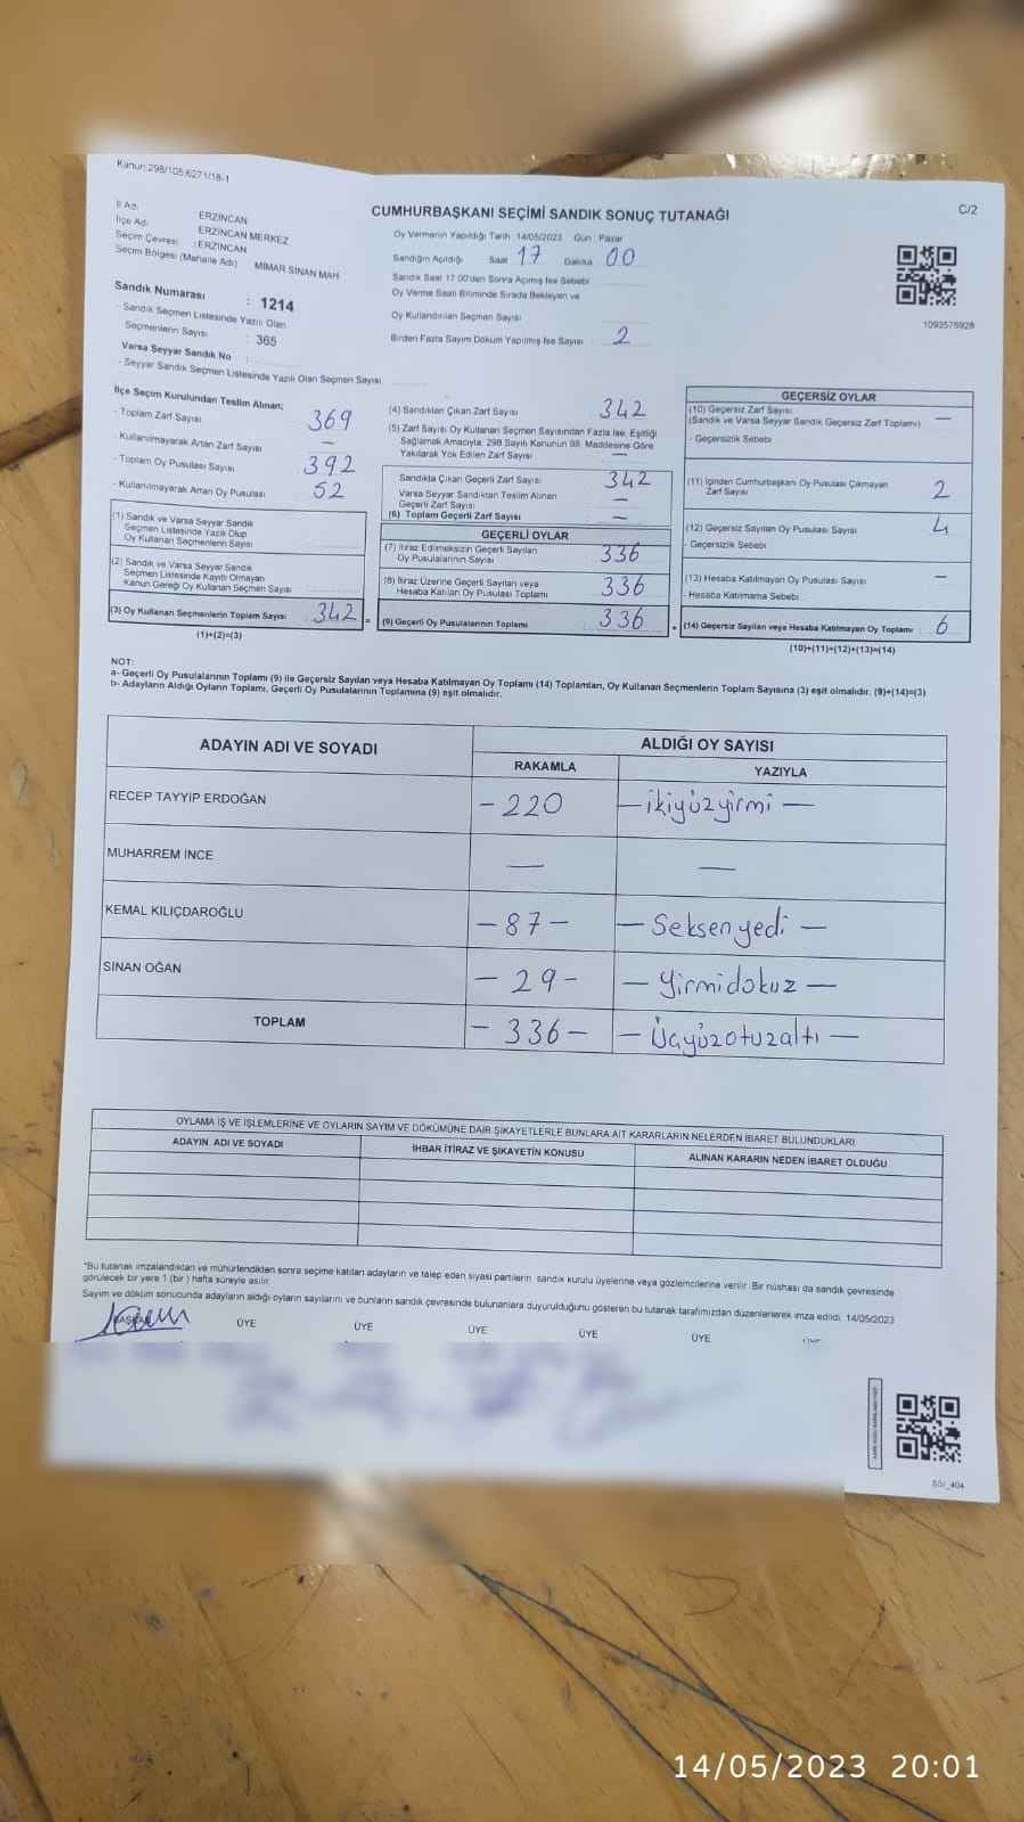 Kanun:298/105,6271/18-1
C/2
CUMHURBAŞKANI SEÇİMİ SANDIK SONUÇ TUTANAĞI
İl Adı ERZİNCAN
İlçe Adı ERZİNCAN MERKEZ
Seçim Çevresi : ERZİNCAN
Seçim Bölgesi (Mahalle Adı) MİMAR SİNAN MAH
Sandık Numarası : 1214
- Sandık Seçmen Listesinde Yazılı Olan
Seçmenlerin Sayısı : 365
Varsa Seyyar Sandık No :
- Seyyar Sandık Seçmen Listesinde Yazılı Olan Seçmen Sayısı
Oy Vermenin Yapıldığı Tarih :14/05/2023 Gün : Pazar
Sandığın Açıldığı Saat 17 Dakika 00
Sandık Saat 17.00'den Sonra Açılmış İse Sebebi
Oy Verme Saati Bitiminde Sırada Bekleyen ve
Oy Kullandırılan Seçmen Sayısı
Birden Fazla Sayım Döküm Yapılmış İse Sayısı 2
1093575928
İlçe Seçim Kurulundan Teslim Alınan;
- Toplam Zarf Sayısı 369
- Kullanılmayarak Artan Zarf Sayısı —
- Toplam Oy Pusulası Sayısı 392
- Kullanılmayarak Artan Oy Pusulası 52
(1) Sandık ve Varsa Seyyar Sandık
Seçmen Listesinde Yazılı Olup
Oy Kullanan Seçmenlerin Sayısı
(2) Sandık ve Varsa Seyyar Sandık
Seçmen Listesinde Kayıtlı Olmayan
Kanun Gereği Oy Kullanan Seçmen Sayısı
(3) Oy Kullanan Seçmenlerin Toplam Sayısı 342 =
(1)+(2)=(3)
(4) Sandıktan Çıkan Zarf Sayısı 342
(5) Zarf Sayısı Oy Kullanan Seçmen Sayısından Fazla İse, Eşitliği
Sağlamak Amacıyla, 298 Sayılı Kanunun 98. Maddesine Göre
Yakılarak Yok Edilen Zarf Sayısı —
Sandıkta Çıkan Geçerli Zarf Sayısı 342
Varsa Seyyar Sandıktan Teslim Alınan
Geçerli Zarf Sayısı —
(6) Toplam Geçerli Zarf Sayısı —
GEÇERLİ OYLAR
(7) İtiraz Edilmeksizin Geçerli Sayılan
Oy Pusulalarının Sayısı 336
(8) İtiraz Üzerine Geçerli Sayılan veya
Hesaba Katılan Oy Pusulası Toplamı 336
(9) Geçerli Oy Pusulalarının Toplamı 336 +
GEÇERSİZ OYLAR
(10) Geçersiz Zarf Sayısı
(Sandık ve Varsa Seyyar Sandık Geçersiz Zarf Toplamı) —
- Geçersizlik Sebebi
(11) İçinden Cumhurbaşkanı Oy Pusulası Çıkmayan
Zarf Sayısı 2
(12) Geçersiz Sayılan Oy Pusulası Sayısı 4
- Geçersizlik Sebebi
(13) Hesaba Katılmayan Oy Pusulası Sayısı —
- Hesaba Katılmama Sebebi
(14) Geçersiz Sayılan veya Hesaba Katılmayan Oy Toplamı 6
(10)+(11)+(12)+(13)=(14)
NOT:
a- Geçerli Oy Pusulalarının Toplamı (9) ile Geçersiz Sayılan veya Hesaba Katılmayan Oy Toplamı (14) Toplamları, Oy Kullanan Seçmenlerin Toplam Sayısına (3) eşit olmalıdır. (9)+(14)=(3)
b- Adayların Aldığı Oyların Toplamı, Geçerli Oy Pusulalarının Toplamına (9) eşit olmalıdır.
ADAYIN ADI VE SOYADI
ALDIĞI OY SAYISI
RAKAMLA YAZIYLA
RECEP TAYYİP ERDOĞAN - 220 — ikiyüzyirmi —
MUHARREM İNCE — —
KEMAL KILIÇDAROĞLU - 87 - — Seksenyedi —
SİNAN OĞAN - 29 - — Yirmidokuz —
TOPLAM - 336 - — Üçyüzotuzaltı —
OYLAMA İŞ VE İŞLEMLERİNE VE OYLARIN SAYIM VE DÖKÜMÜNE DAİR ŞİKAYETLERLE BUNLARA AİT KARARLARIN NELERDEN İBARET BULUNDUKLARI
ADAYIN ADI VE SOYADI İHBAR İTİRAZ VE ŞİKAYETİN KONUSU ALINAN KARARIN NEDEN İBARET OLDUĞU
*Bu tutanak imzalandıktan ve mühürlendikten sonra seçime katılan adayların ve talep eden siyasi partilerin, sandık kurulu üyelerine veya gözlemcilerine verilir. Bir nüshası da sandık çevresinde
görülecek bir yere 1 (bir) hafta süreyle asılır.
Sayım ve döküm sonucunda adayların aldığı oyların sayılarını ve bunların sandık çevresinde bulunanlara duyurulduğunu gösteren bu tutanak tarafımızdan düzenlenerek imza edildi. 14/05/2023
BAŞKAN ÜYE ÜYE ÜYE ÜYE ÜYE
14/05/2023 20:01